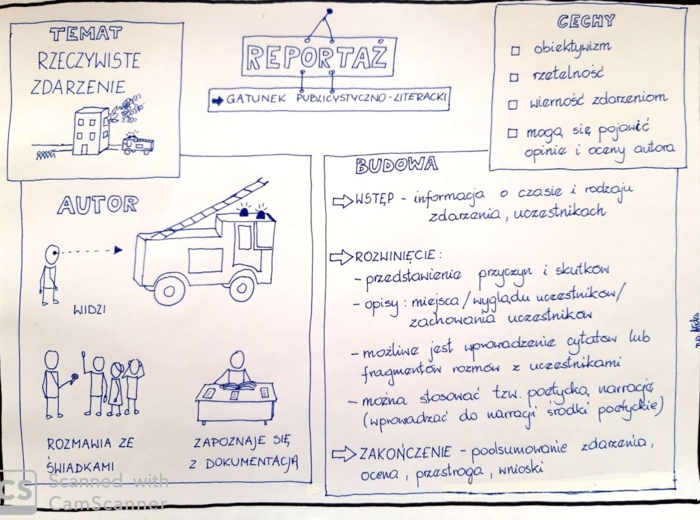 REPORTAŻ
➡ GATUNEK PUBLICYSTYCZNO-LITERACKI
TEMAT
RZECZYWISTE
ZDARZENIE
CECHY
□ obiektywizm
□ rzetelność
□ wierność zdarzeniom
□ mogą się pojawić
opinie i oceny autora
AUTOR
WIDZI
ROZMAWIA ZE
ŚWIADKAMI
ZAPOZNAJE SIĘ
Z DOKUMENTACJĄ
BUDOWA
⇨ WSTĘP - informacja o czasie i rodzaju
zdarzenia, uczestnikach
⇨ ROZWINIĘCIE:
- przedstawienie przyczyn i skutków
- opisy: miejsca/wyglądu uczestników/
zachowania uczestników
- możliwe jest wprowadzenie cytatów lub
fragmentów rozmów z uczestnikami
- można stosować tzw. poetycką narrację
(wprowadzać do narracji środki poetyckie)
⇨ ZAKOŃCZENIE - podsumowanie zdarzenia,
ocena, przestroga, wnioski
CS Scanned with
CamScanner